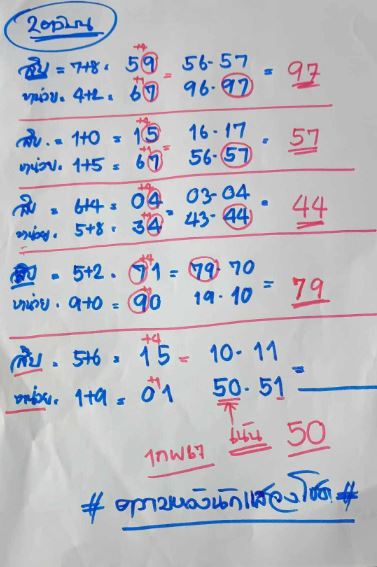 2ตัวบน
สิบ = 7+8 = 59 = 56-57 = 97
หน่วย = 4+2 = 67 96-97
สิบ = 1+0 = 15 = 16-17 = 57
หน่วย = 1+5 = 67 56-57
สิบ = 6+4 = 04 = 03-04 = 44
หน่วย = 5+8 = 34 43-44
สิบ = 5+2 = 71 = 79-70 = 79
หน่วย = 9+0 = 90 19-10
สิบ = 5+6 = 15 = 10-11 =
หน่วย = 1+9 = 01 50-51
1กพ67 เน้น 50